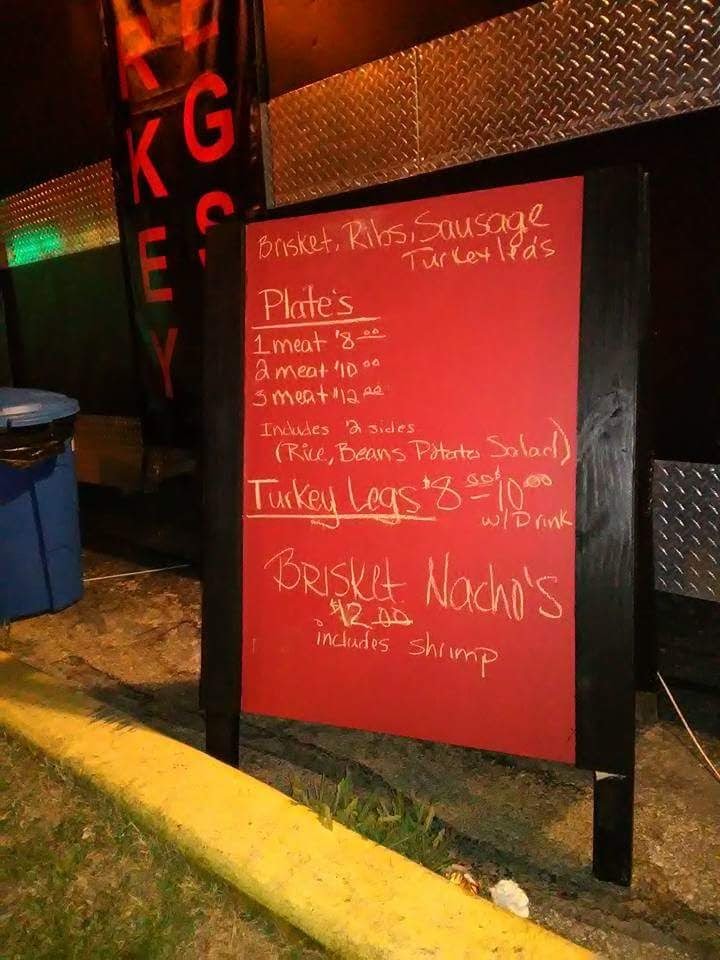 KEY
EGS
Brisket, Ribs, Sausage
Turkey
Plate's
1 meat $8.00
2 meat $10.00
3 meat $12.00
Includes 2 sides
(Rice, Beans Potato Salad)
Turkey Legs $8.00 $10.00
w/ Drink
BRISKET Nacho's
$12.00
includes shrimp